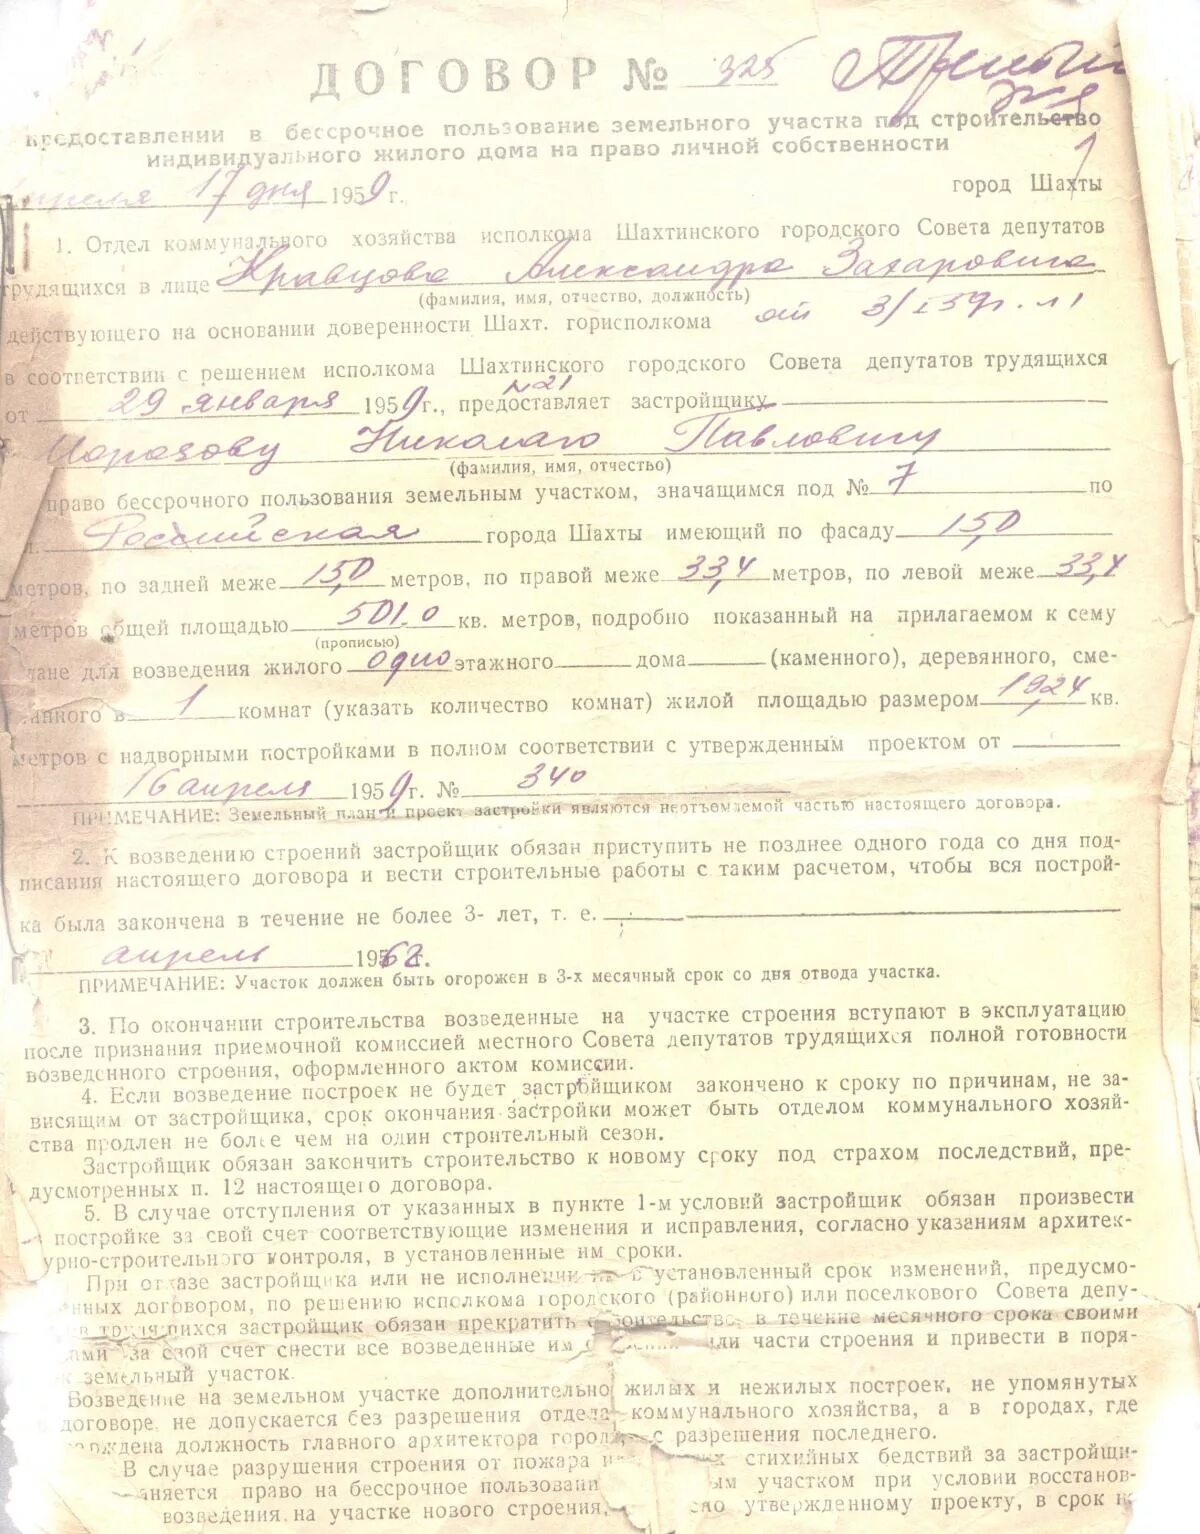 ДОГОВОР № 325
предоставлении в бессрочное пользование земельного участка под строительство
индивидуального жилого дома на право личной собственности
апреля 17 дня 1959 г.
город Шахты
1. Отдел коммунального хозяйства исполкома Шахтинского городского Совета депутатов
трудящихся в лице Кравцова Александра Захаровича
(фамилия, имя, отчество, должность)
действующего на основании доверенности Шахт. горисполкома от 3/I 59г.
в соответствии с решением исполкома Шахтинского городского Совета депутатов трудящихся
№21
от 29 января 1959 г., предоставляет застройщику
Морозову Николаю Павловичу
(фамилия, имя, отчество)
право бессрочного пользования земельным участком, значащимся под № 7 по
Российская города Шахты имеющий по фасаду 15,0
метров, по задней меже 15,0 метров, по правой меже 33,4 метров, по левой меже 33,4
метров общей площадью 501.0 кв. метров, подробно показанный на прилагаемом к сему
(прописью)
плане для возведения жилого одно этажного дома (каменного), деревянного, сме-
шанного в 1 комнат (указать количество комнат) жилой площадью размером 19,24 кв.
метров с надворными постройками в полном соответствии с утвержденным проектом от
16 апреля 1959 г. № 340
ПРИМЕЧАНИЕ: Земельный план и проект застройки являются неотъемлемой частью настоящего договора.
2. К возведению строений застройщик обязан приступить не позднее одного года со дня под-
писания настоящего договора и вести строительные работы с таким расчетом, чтобы вся построй-
ка была закончена в течение не более 3- лет, т. е.
апрель 1962 г.
ПРИМЕЧАНИЕ: Участок должен быть огорожен в 3-х месячный срок со дня отвода участка.
3. По окончании строительства возведенные на участке строения вступают в эксплуатацию
после признания приемочной комиссией местного Совета депутатов трудящихся полной готовности
возведенного строения, оформленного актом комиссии.
4. Если возведение построек не будет застройщиком закончено к сроку по причинам, не за-
висящим от застройщика, срок окончания застройки может быть отделом коммунального хозяй-
ства продлен не более чем на один строительный сезон.
Застройщик обязан закончить строительство к новому сроку под страхом последствий, пре-
дусмотренных п. 12 настоящего договора.
5. В случае отступления от указанных в пункте 1-м условий застройщик обязан произвести
постройке за свой счет соответствующие изменения и исправления, согласно указаниям архитек-
урно-строительного контроля, в установленные им сроки.
При отказе застройщика или не исполнении в установленный срок изменений, предусмо-
нных договором, по решению исполкома городского (районного) или поселкового Совета депу-
трудящихся застройщик обязан прекратить строительство в течение месячного срока своими
за свой счет снести все возведенные им или части строения и привести в поря-
земельный участок.
Возведение на земельном участке дополнительно жилых и нежилых построек, не упомянутых
договоре, не допускается без разрешения отдела коммунального хозяйства, а в городах, где
должность главного архитектора города, с разрешения последнего.
В случае разрушения строения от пожара стихийных бедствий за застройщи-
право на бессрочное участком при условии восстанов-
возведения на участке нового строения, утвержденному проекту, в срок